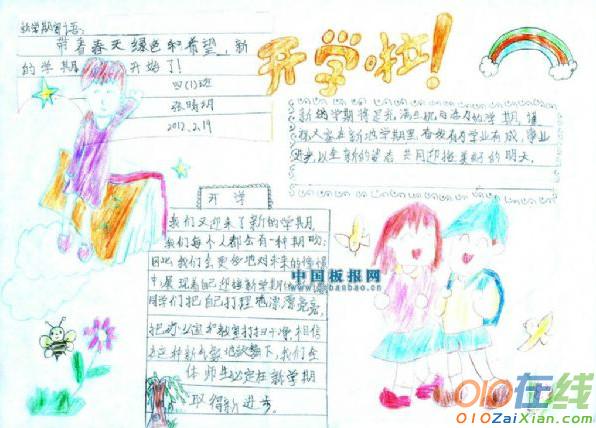 新学期寄语:
带着春天绿色和希望,新
的学期 开始了!
四(1)班
张晴玥
2012.2.19
开学啦!
新的学期将是充满生机与活力的学期,谨
祝大家在新的学期里,各位有学业有成,事业
进步,以全新的姿态 共同迎接美好的明天。
开学
我们又迎来了新的学期,
我们每个人都会有一种期盼:
因此我们会更多地对未来的憧憬
中展现着自己迎接新学期
同学们把自己打理地漂漂亮亮,
把 教室打扫干净,相信
在这种新气象地鼓舞下,我们全
体师生必定在新学期
取得新进步。
中国板报网
banbao.cn
010在线
010ZaiXian.Com